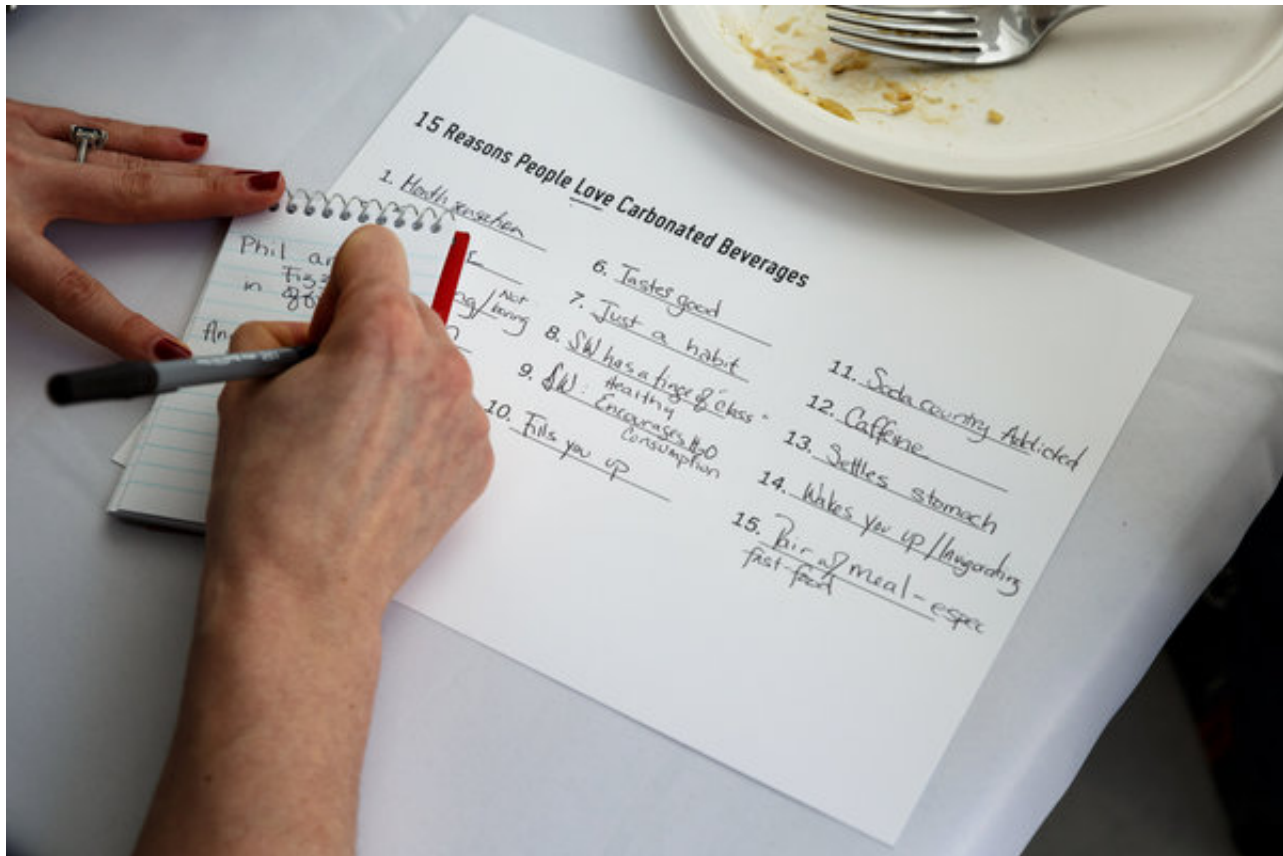 15 Reasons People Love Carbonated Beverages
1. Mouth sensation
Not
boring
6. Tastes good
7. Just a habit
8. SW has a tinge of "class"
9. SW: Healthy
Encourages H2O
Consumption
10. Fills you up
11. Soda country Addicted
12. Caffeine
13. Settles stomach
14. Wakes you up / Invigorating
15. Pair w/ meal - espec
fast-food
Phil
in